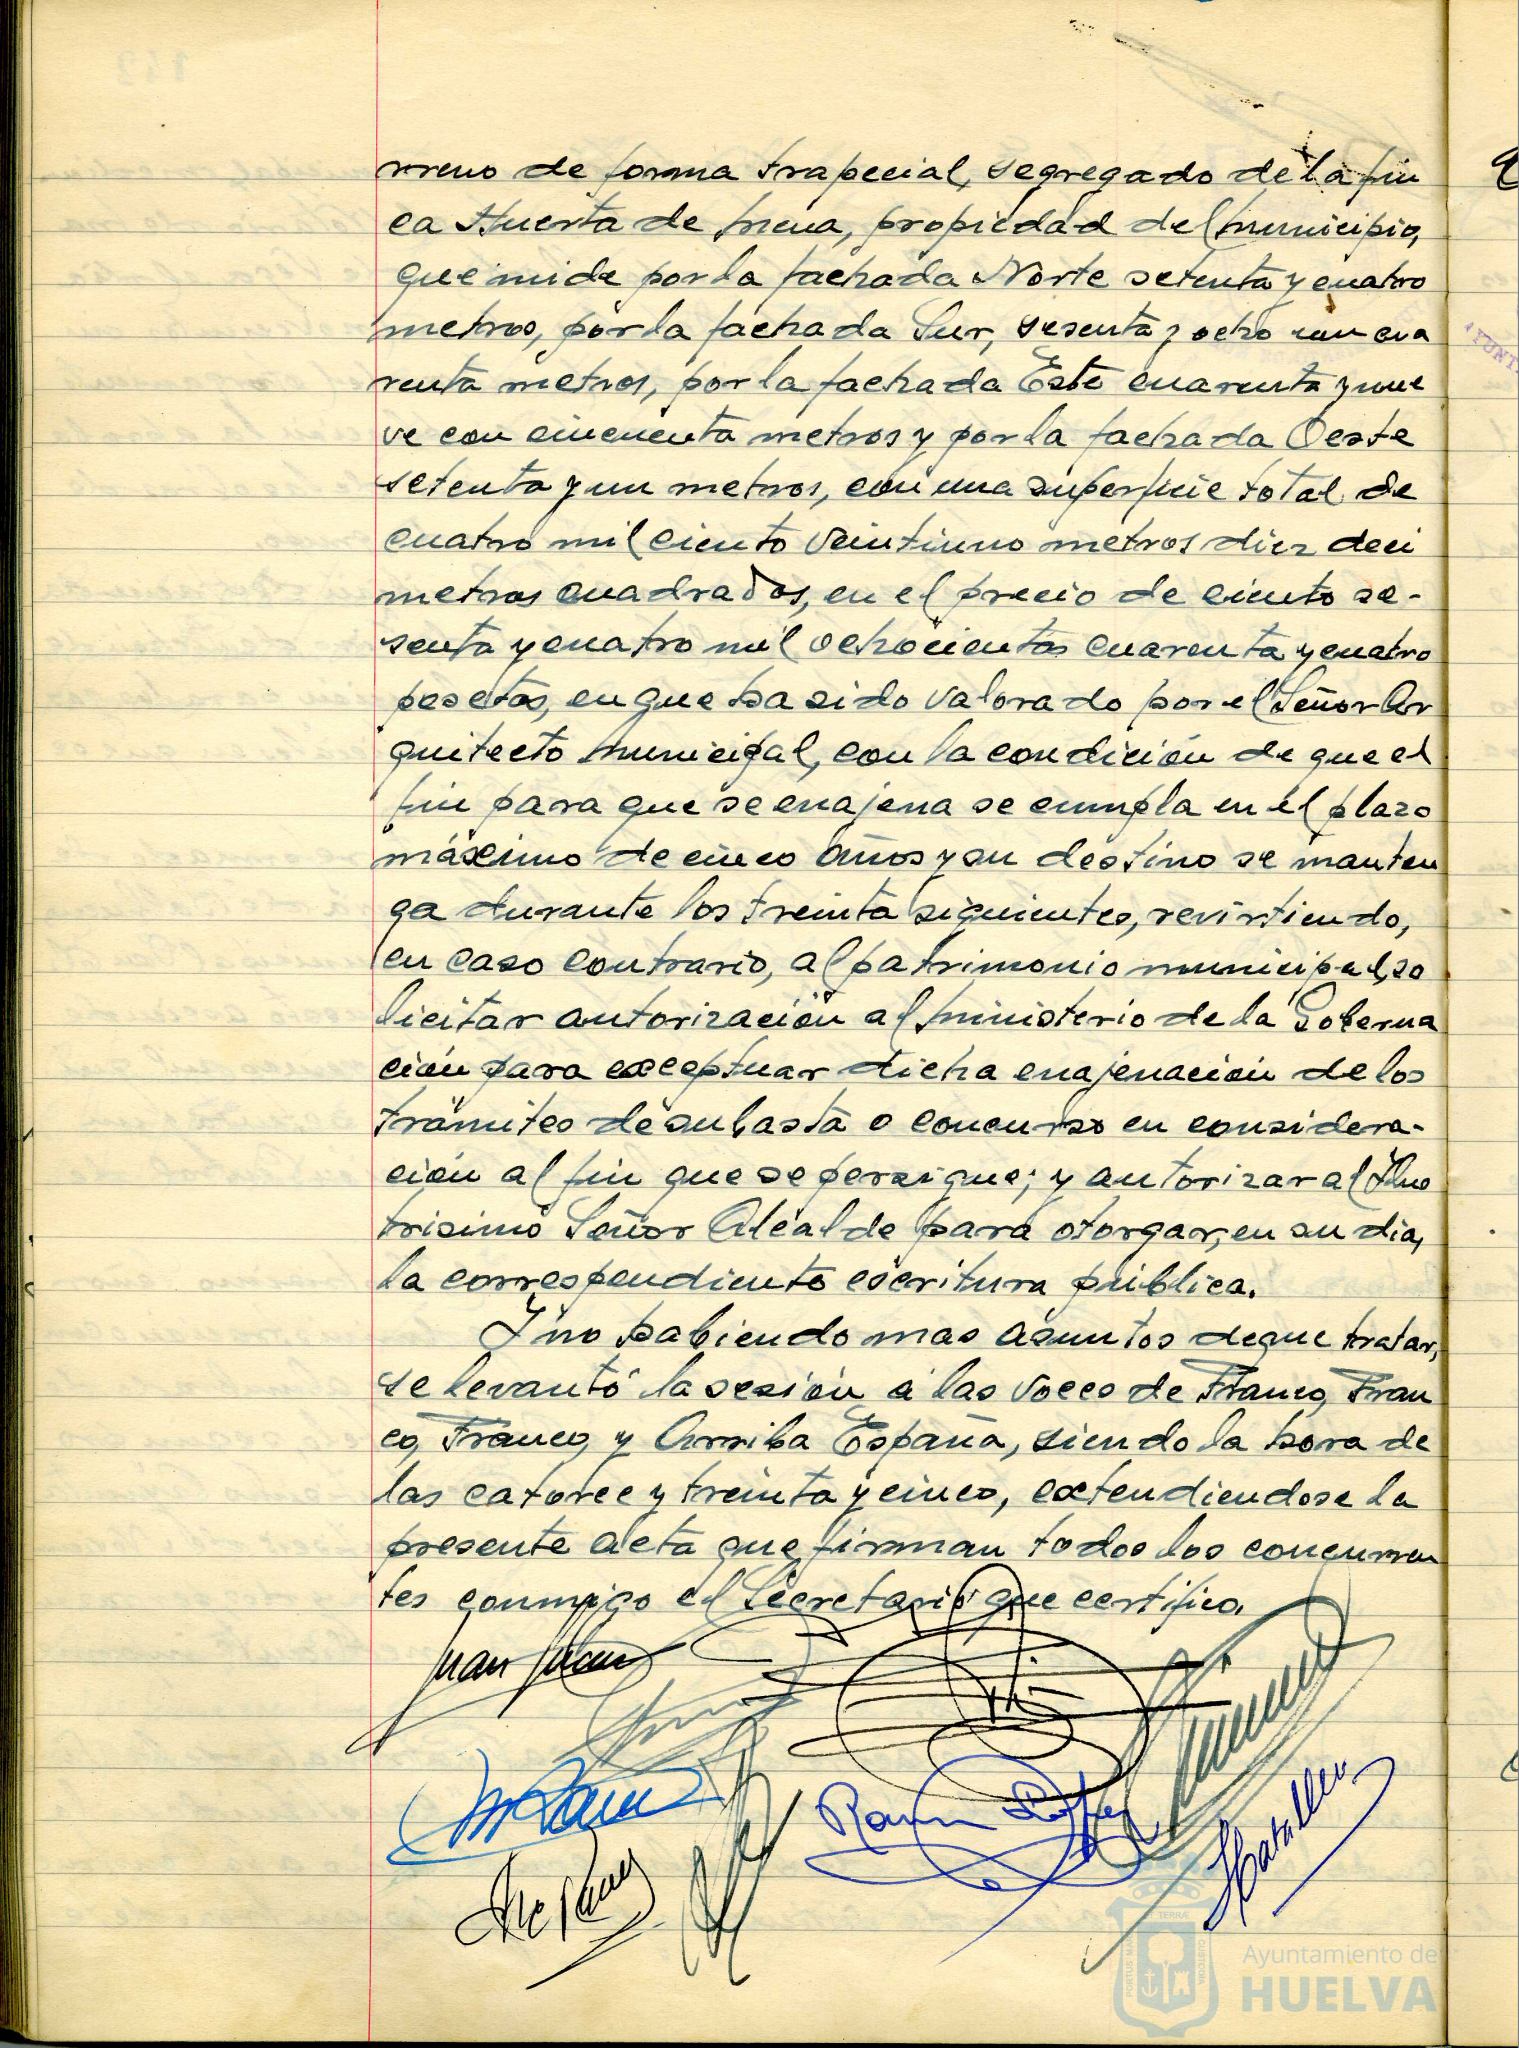 rreno de forma trapecial, segregado de la fin
ca Huerta de Mena, propiedad del Municipio,
que mide por la fachada Norte setenta y cuatro
metros, por la fachada Sur, sesenta y ocho con cua
renta metros, por la fachada Este cuarenta y nue
ve con cincuenta metros y por la fachada Oeste
setenta y un metros, con una superficie total de
cuatro mil ciento veintiuno metros diez deci
metros cuadrados, en el precio de ciento se-
senta y cuatro mil ochocientas cuarenta y cuatro
pesetas, en que ha sido valorado por el Señor Ar
quitecto Municipal, con la condición de que el
fin para que se enajena se cumpla en el plazo
máximo de cinco años y su destino se manten
ga durante los treinta siguientes, revirtiendo,
en caso contrario, al patrimonio municipal, so
licitar autorización al Ministerio de la Goberna
ción para exceptuar dicha enajenación de los
trámites de subasta o concurso en considera-
ción al fin que se persigue; y autorizar al Ilus
trisimo Señor Alcalde para otorgar, en su dia,
la correspondiente escritura pública.
Y no habiendo mas asuntos de que tratar,
se levantó la sesión a las voces de Franco, Fran
co, Franco, y Arriba España, siendo la hora de
las catorce y treinta y cinco, extendiendose la
presente acta que firman todos los concurren
tes conmigo el Secretario que certifico.
Juan
Ramon
Ayuntamiento de
HUELVA